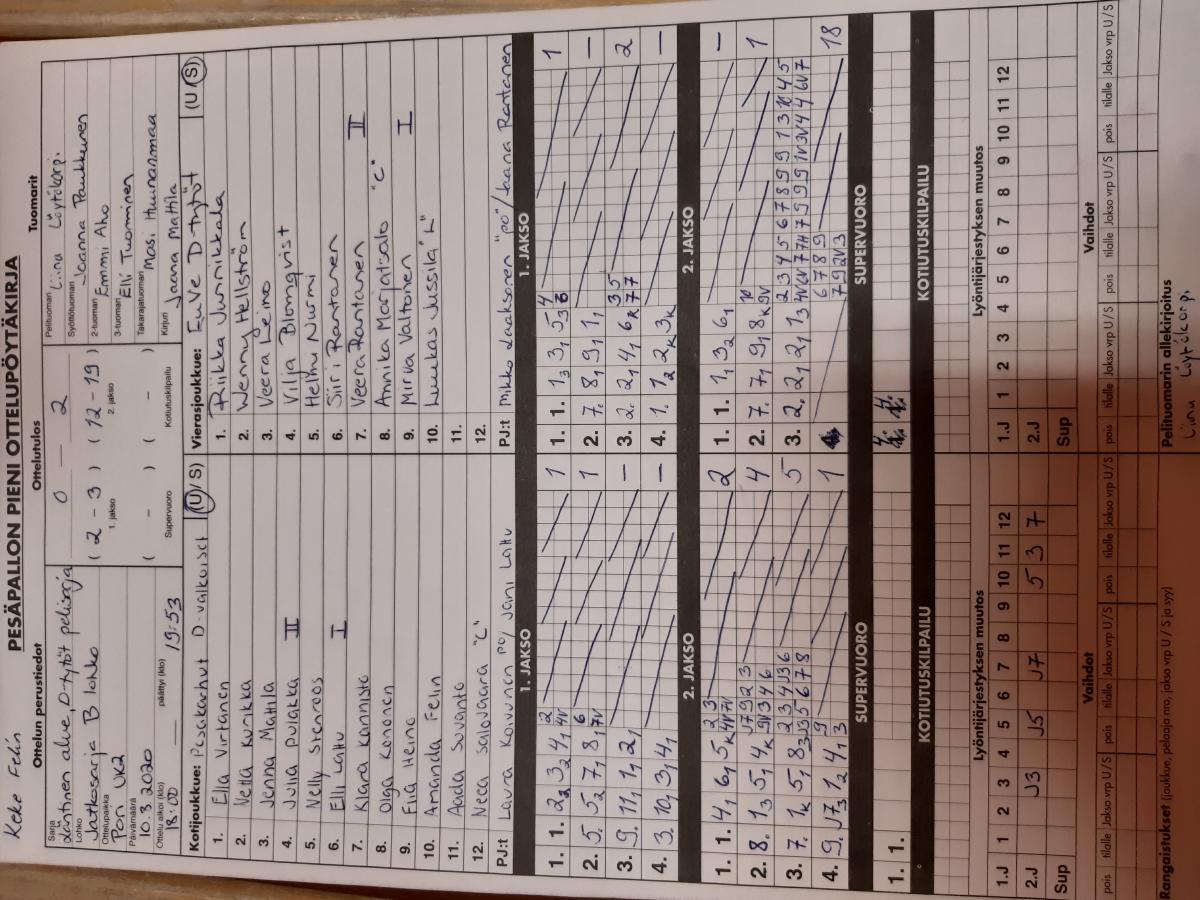 Keke Felin
PESÄPALLON PIENI OTTELUPÖYTÄKIRJA
Ottelun perustiedot
Ottelutulos
Tuomarit
Sarja
Läntinen alue, D-tytöt pelisarja
Lohko
Jatkosarja B lohko
Ottelupaikka
Pori UK2
Päivämäärä
10.3.2020
Ottelu alkoi (klo)
18:00
päättyi (klo)
19:53
0 — 2
( 2 - 3 ) ( 12 - 19 )
1. jakso 2. jakso
( - ) ( - )
Supervuoro Kotiutuskilpailu
Pelituomari
Liina Löytökorpi
Syöttötuomari
Joanna Paukkunen
2-tuomari
Emmi Aho
3-tuomari
Elli Tuominen
Takarajatuomari
Masi Huunanmaa
Kirjuri
Jaana Mattila
Kotijoukkue: Pesäkarhut D-valkoiset (U / S)
1. Ella Virtanen
2. Netta Kunikka
3. Jenna Mattila
4. Julia Pulakka II
5. Nelly Stenroos
6. Elli Lattu I
7. Klara Kannisto
8. Olga Kononen
9. Eila Heino
10. Amanda Felin
11. Aada Suvanto
12. Neea Salavaara "C"
PJ:t Laura Koivunen PO / Jani Lattu
Vierasjoukkue: EuVe D-tytöt (U / S)
1. Riikka Junnikkala
2. Wenny Hellström
3. Veera Leino
4. Vilja Blomqvist
5. Helmi Nurmi
6. Siiri Rantanen
7. Veera Rantanen II
8. Annika Marjatsalo "C"
9. Mirva Valtonen I
10. Luukas Jussila "L"
11.
12.
PJ:t Mikko Laaksonen "po" / Jaana Rantanen
1. JAKSO
1. 1. 2₂ 3₂ 4₁ 2 4V 1
2. 5. 5₂ 7₁ 8₁ 6 7V 1
3. 9. 11₁ 1₁ 2₁ —
4. 3. 10₁ 3₁ 4₁ —
1. JAKSO
1. 1. 1₃ 3₁ 5₃ 1
2. 7. 8₁ 9₁ 1₁ —
3. 2. 2₁ 4₁ 6K 3 5 7 7 2
4. 1. 1₂ 2K 3K —
2. JAKSO
1. 1. 4₁ 6₁ 5K 2 3 4V 7V 2
2. 8. 1₃ 5₁ 4K J7 9 2 3 9V 3 4 6 4
3. 7. 1K 5₁ 8₃ 2 3 4 J3 6 J3 5 6 7 8 5
4. 9. J7₃ 1₂ 4₁ 9 3 1
2. JAKSO
1. 1. 1₁ 3₂ 6₁ —
2. 7. 7₁ 9₁ 8K 10 9V 1
3. 2. 2₁ 2₁ 1₃ 2 3 4 5 6 7 8 9 9 1 3 10 4 5
6 7 8 9
7 9 2V 3 18
SUPERVUORO
1. 1.
SUPERVUORO
KOTIUTUSKILPAILU
KOTIUTUSKILPAILU
Lyöntijärjestyksen muutos
1.J 1 2 3 4 5 6 7 8 9 10 11 12
2.J J3 J5 J7 5 3 7
Sup
Lyöntijärjestyksen muutos
1.J 1 2 3 4 5 6 7 8 9 10 11 12
2.J
Sup
Vaihdot
pois tilalle Jakso vrp U / S pois tilalle Jakso vrp U / S pois tilalle Jakso vrp U / S
Vaihdot
pois tilalle Jakso vrp U / S pois tilalle Jakso vrp U / S pois tilalle Jakso vrp U / S
Rangaistukset (joukkue, pelaaja nro, jakso vrp U / S ja syy)
Pelituomarin allekirjoitus
Liina Löytökorpi